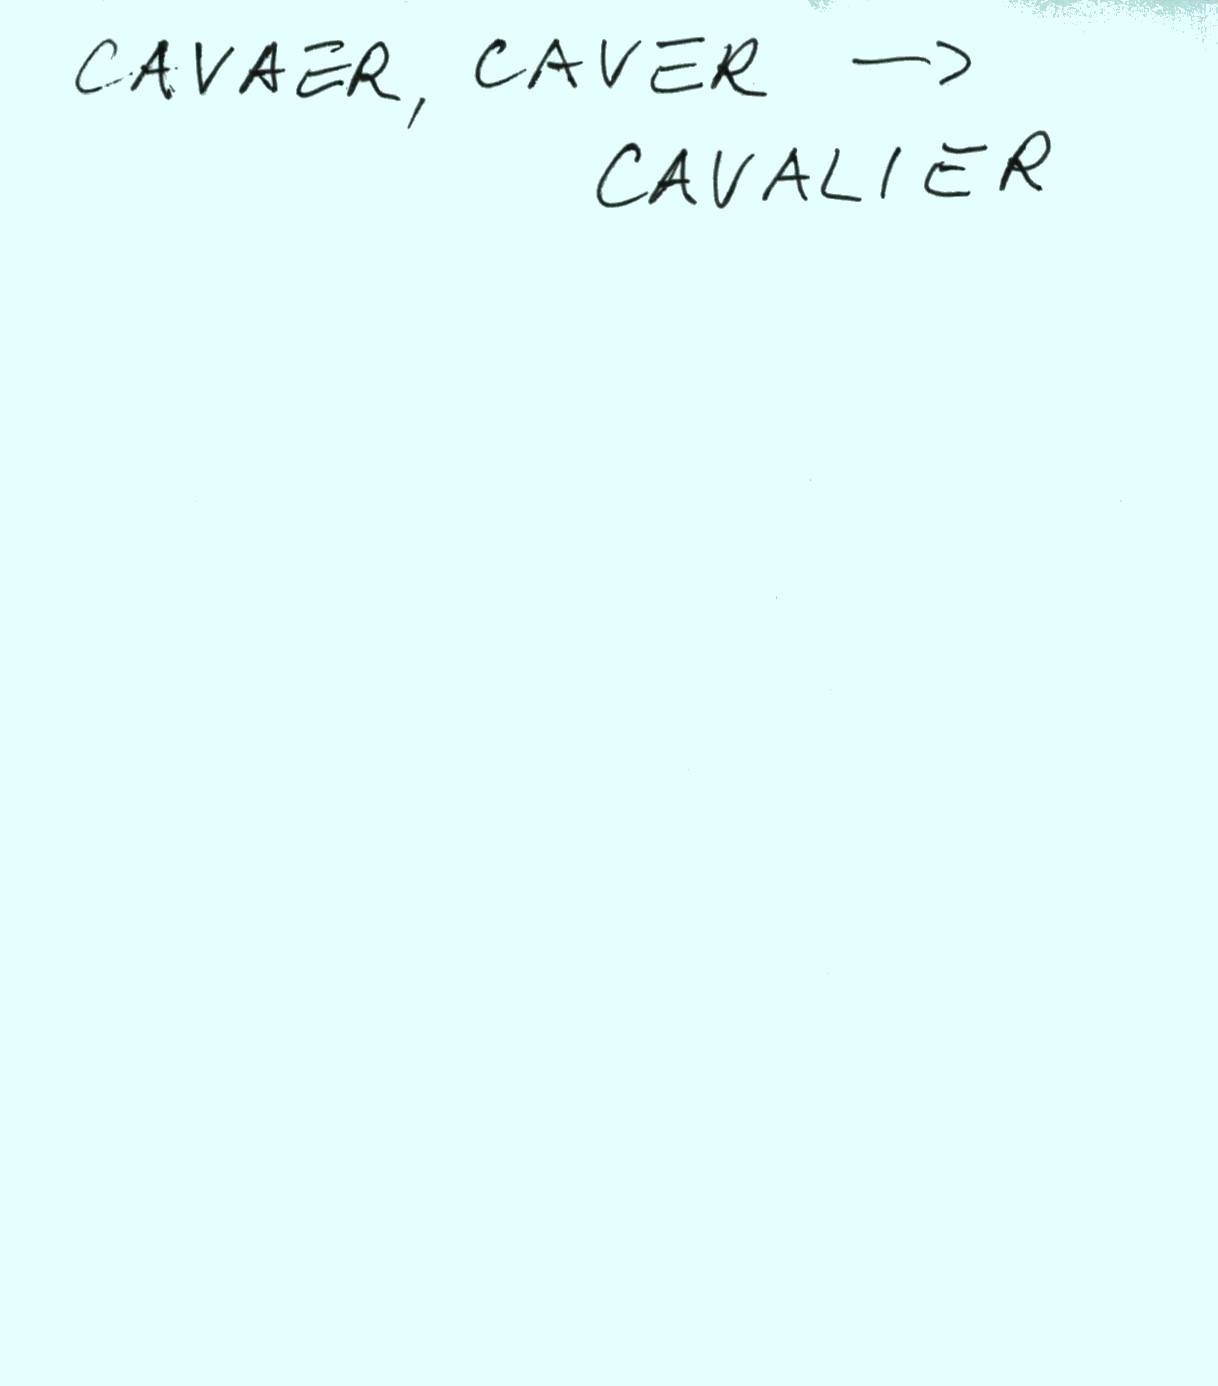 CAVAER, CAVER →
CAVALIER